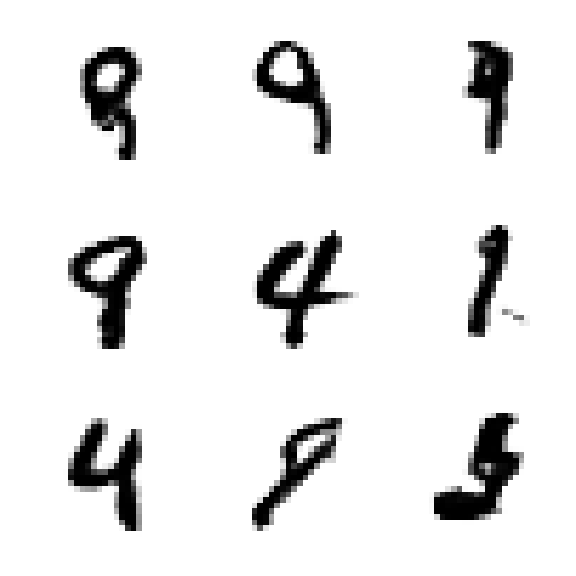 9 9 9
9 4 1
4 8 5